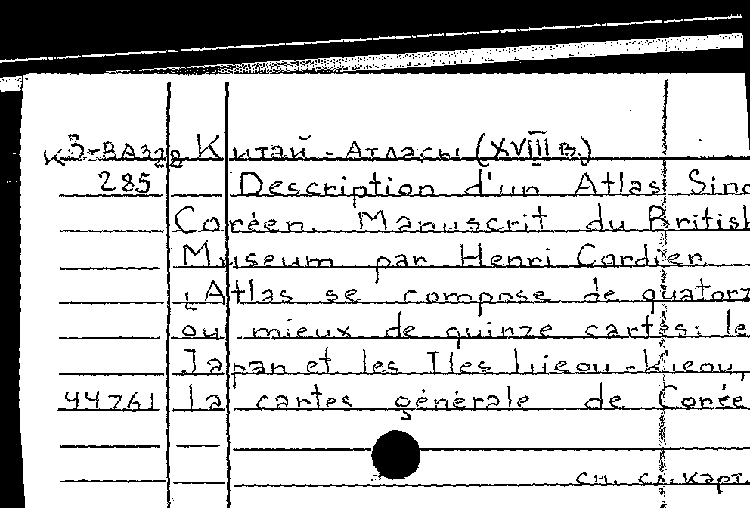 К3-ВА328 Китай - Атласы (XVIII в.)
285 Description d'un Atlas Sino
Coréen. Manuscrit du British
Museum par Henri Cordier
Atlas se compose de quatorz
ou mieux de quinze cartes: le
Japan et les Iles Lieou-Kieou,
44761 la cartes générale de Corée
см. сл. карт.